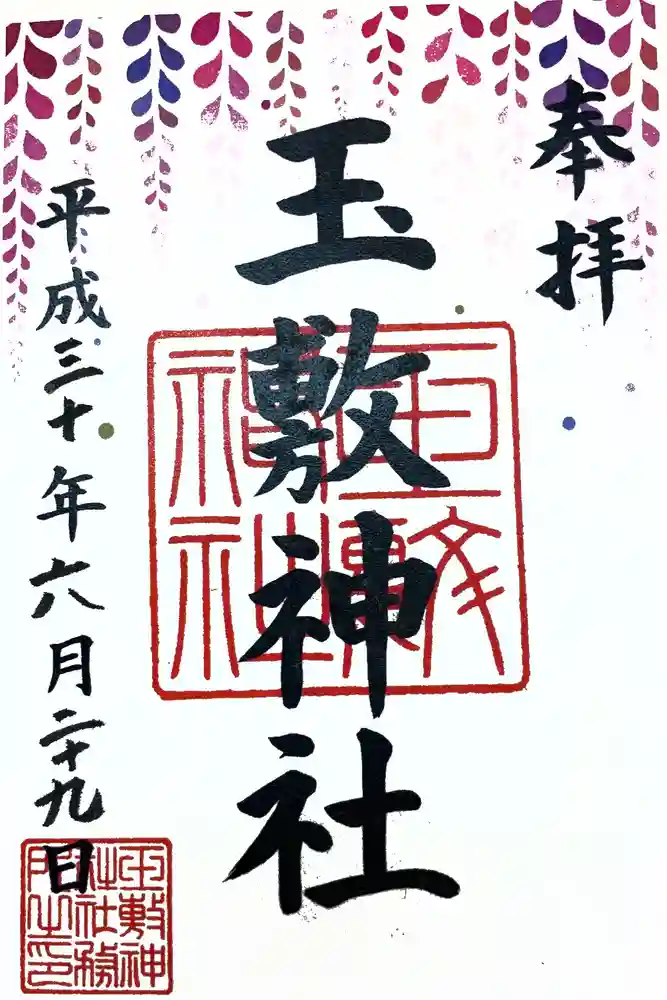 奉拝
玉敷神社
平成三十年六月二十九日
玉敷
神社
玉敷神
社社務
所之印